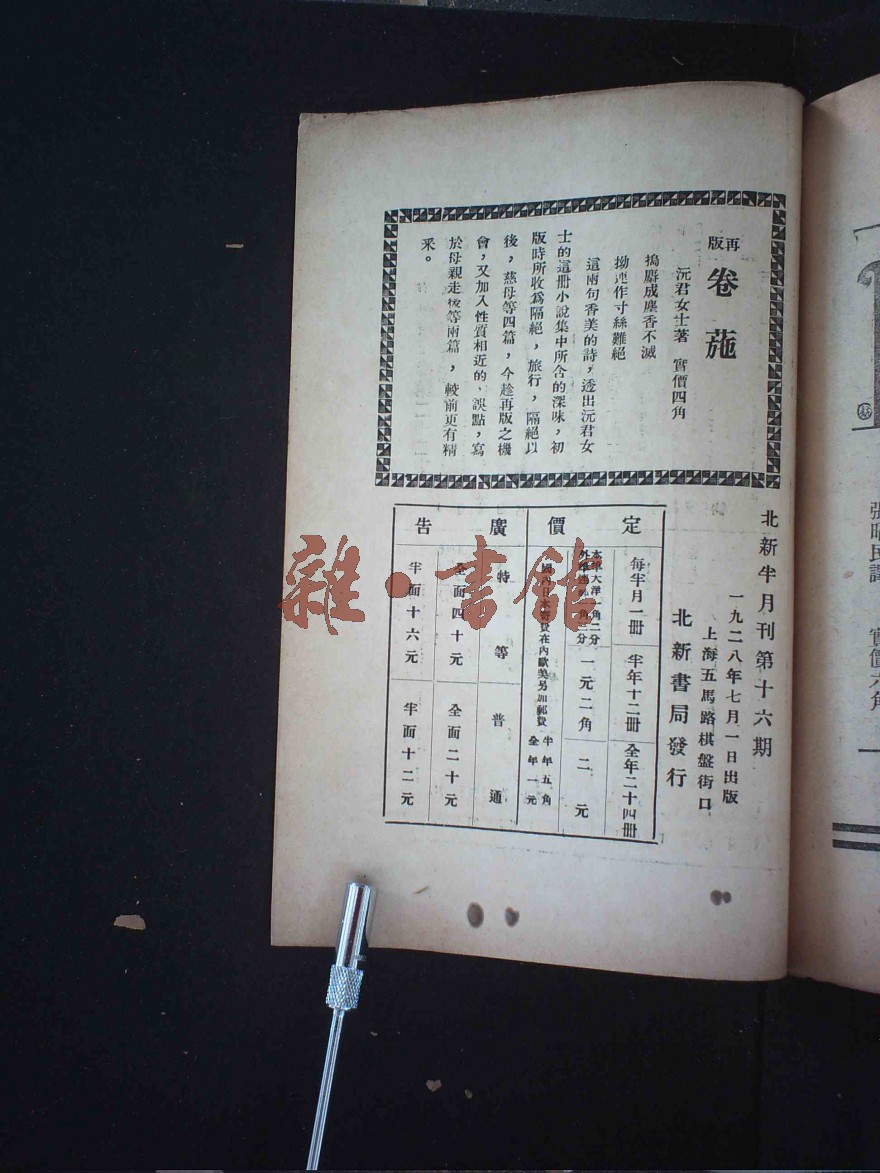 再版
卷葹
沅君女士著　實價四角
搗麝成塵香不滅
拗蓮作寸絲難絕
這兩句香美的詩，透出沅君女
士的這册小說集中所含的深味，初
版時所收爲隔絕，旅行，隔絕以
後，慈母等四篇，今趁再版之機
會，又加入性質相近的，誤點，寫
於母親走後等兩篇，較前更有精
釆。
北新半月刊第十六期
一九二八年七月一日出版
上海五馬路棋盤街口
北新書局發行
定價
每半月一册　半年十二册　全年二十四册
一元二角　二元
半年五角
全年一元
廣告
特等　普通
全面四十元　全面二十元
半面十六元　半面十二元
雜·書館
實價六角